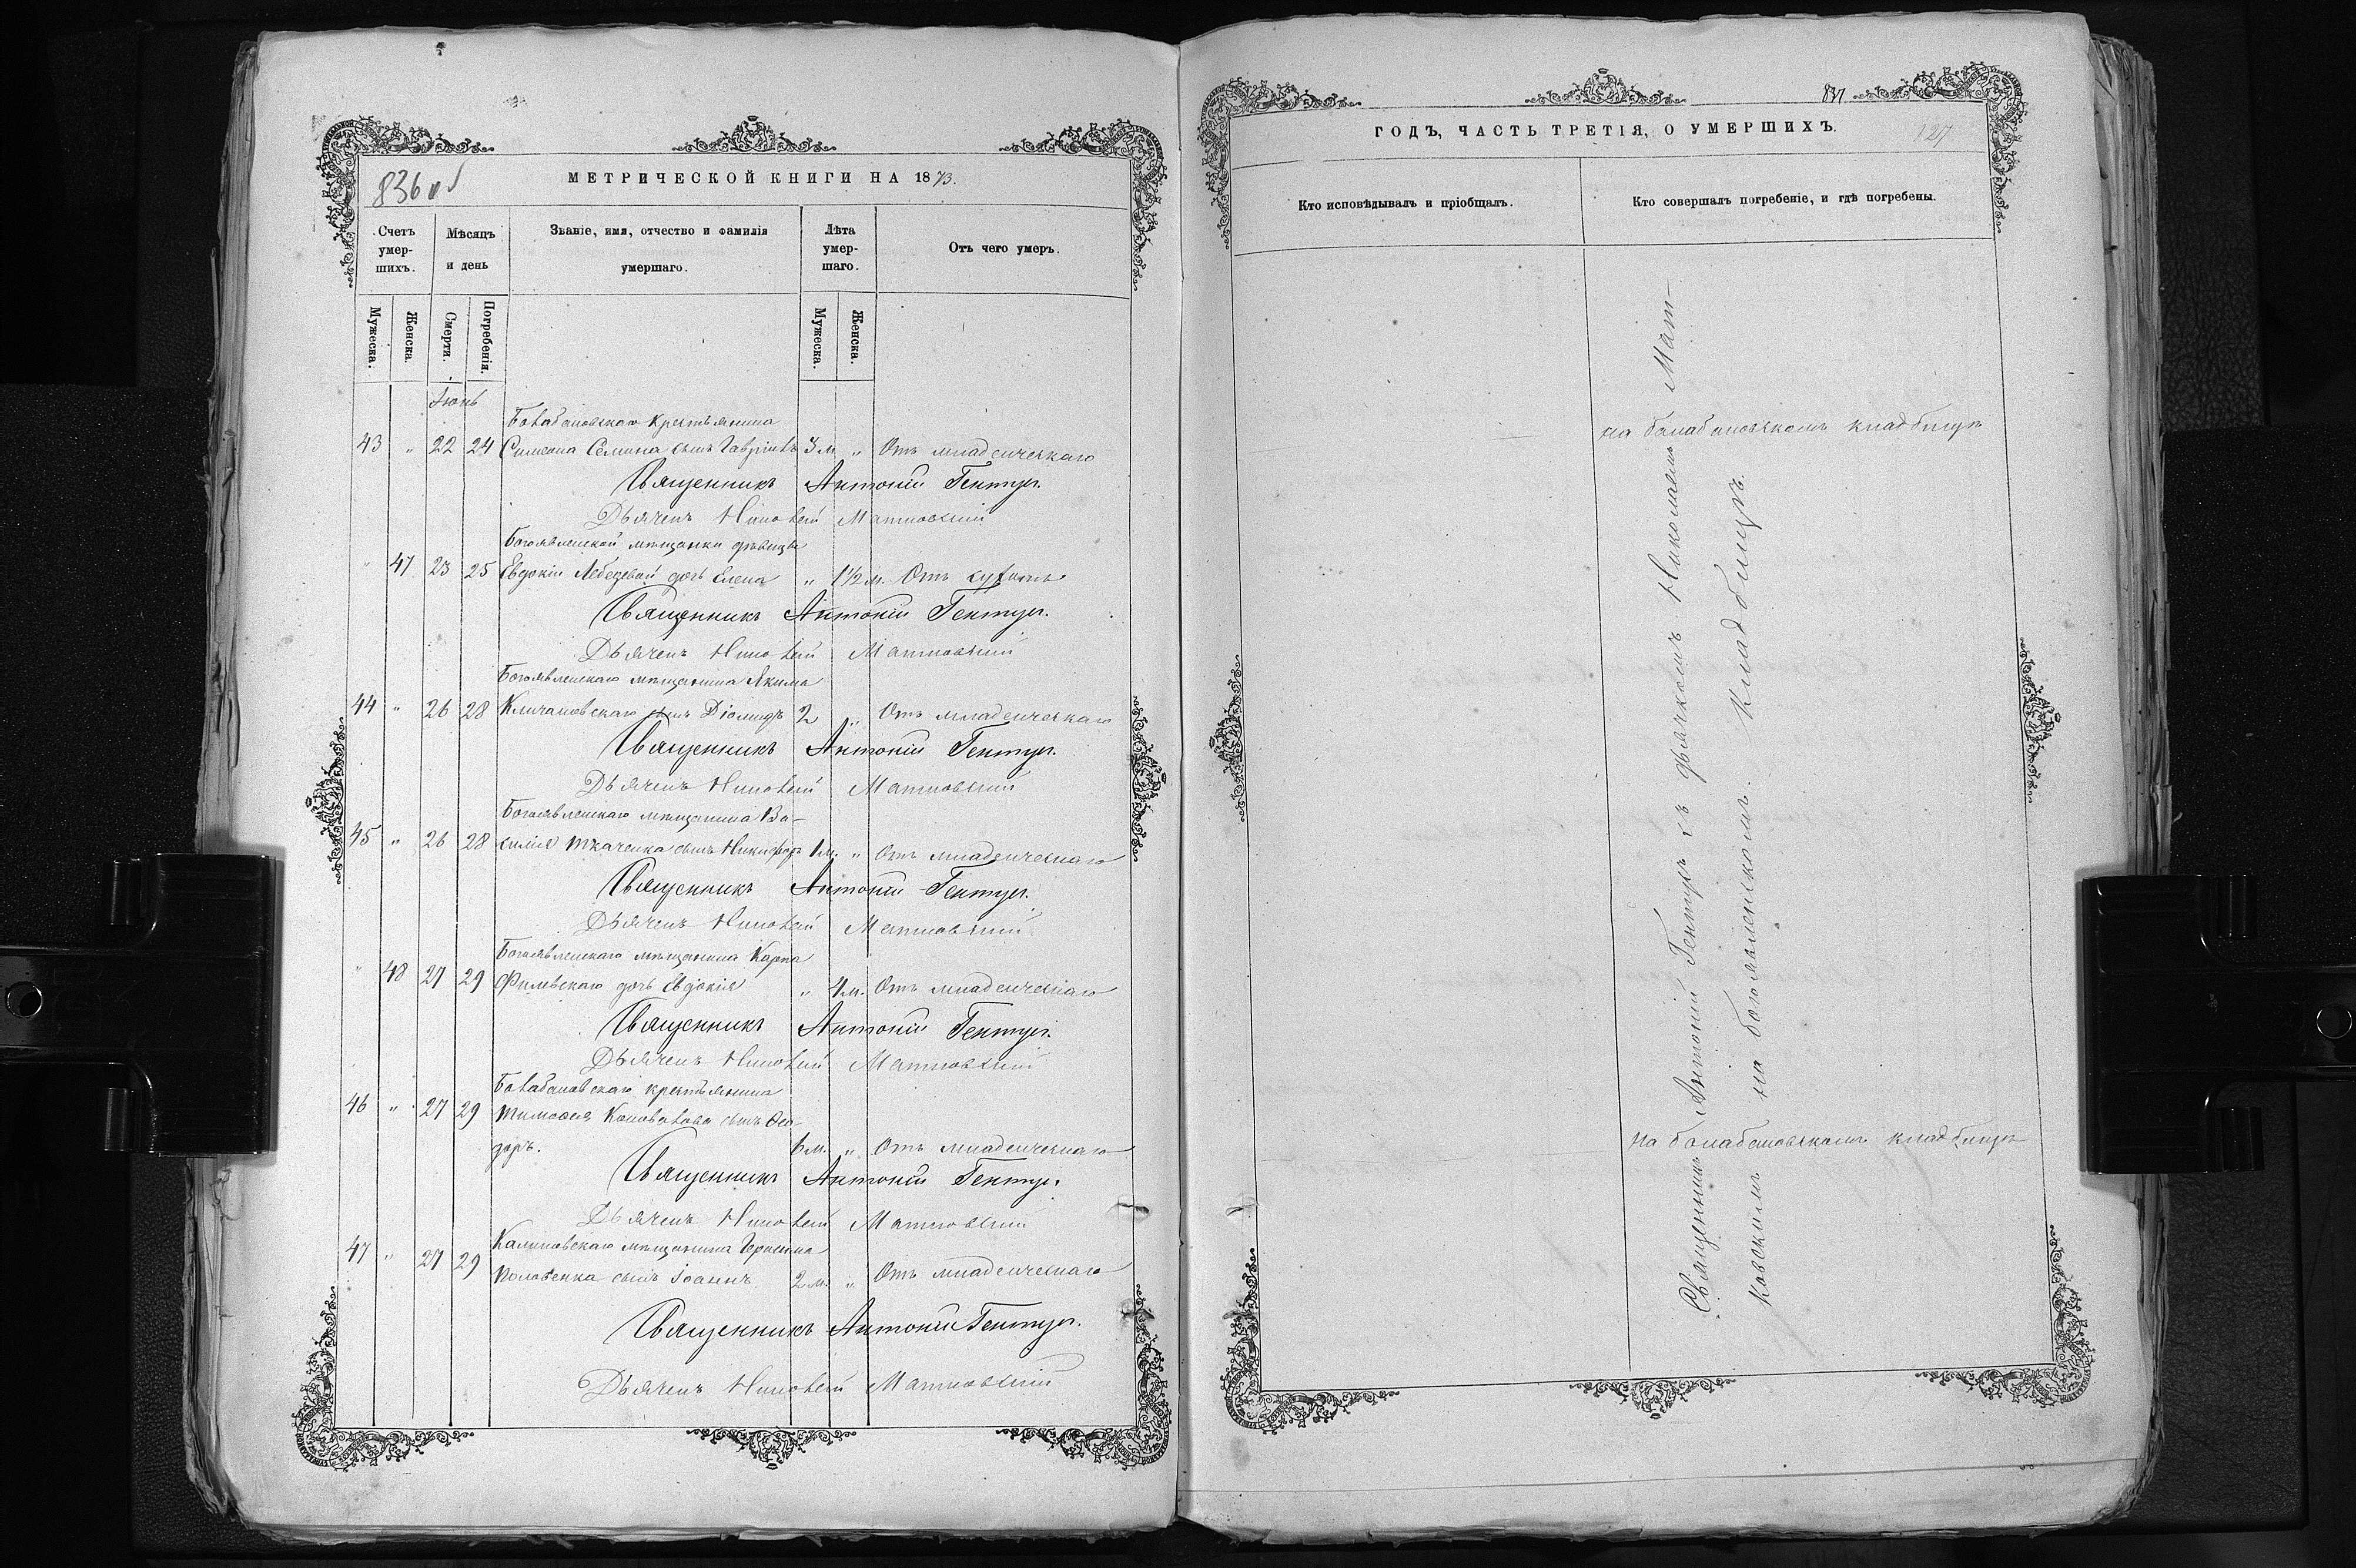 МЕТРИЧЕСКОЙ КНИГИ НА 1873.
836 об
Счетъ умер-шихъ.
Мѣсяцъ и день
Званіе, имя, отчество и фамилія умершаго.
Лѣта умер-шаго.
Отъ чего умеръ.
Мужеска.
Женска.
Смерти.
Погребенія.
Мужеска.
Женска.
Іюнь
Балабановскаго крестьянина
43 " 22 24 Симеона Семина сынъ Гавріилъ 3 м. " Отъ младенческаго
Священникъ Антоній Гентуш.
Дьячекъ Николай Матковскій
Богоявленской мѣщанки дѣвицы
" 47 23 25 Евдокіи Лебедевой дочь Елена " 1½ м. Отъ сухотъ
Священникъ Антоній Гентуш.
Дьячекъ Николай Матковскій
Богоявленскаго мѣщанина Якима
44 " 26 28 Кличановскаго сынъ Діомидъ 2 " Отъ младенческаго
Священникъ Антоній Гентуш.
Дьячекъ Николай Матковскій
Богоявленскаго мѣщанина Ва-
45 " 26 28 силія Ткаченка сынъ Никифоръ 1 м. " Отъ младенческаго
Священникъ Антоній Гентуш.
Дьячекъ Николай Матковскій
Богоявленскаго мѣщанина Карпа
" 48 27 29 дочь Евдокія " 4 м. Отъ младенческаго
Священникъ Антоній Гентуш.
Дьячекъ Николай Матковскій
Балабановскаго крестьянина
46 " 27 29 Тимофея Коновалова сынъ Ѳео-
доръ. 6 м. " Отъ младенческаго
Священникъ Антоній Гентуш.
Дьячекъ Николай Матковскій
Калиновскаго мѣщанина Герасима
47 " 27 29 сынъ Іоаннъ 2 м. " Отъ младенческаго
Священникъ Антоній Гентуш.
Дьячекъ Николай Матковскій
837
ГОДЪ, ЧАСТЬ ТРЕТІЯ, О УМЕРШИХЪ.
Кто исповѣдывалъ и пріобщалъ.
Кто совершалъ погребеніе, и гдѣ погребены.
на балабановскомъ кладбищѣ
Священникъ Антоній Гентушъ съ дьячкомъ Николаемъ Мат-
ковскимъ на богоявленскомъ кладбищѣ.
на балабановскомъ кладбищѣ